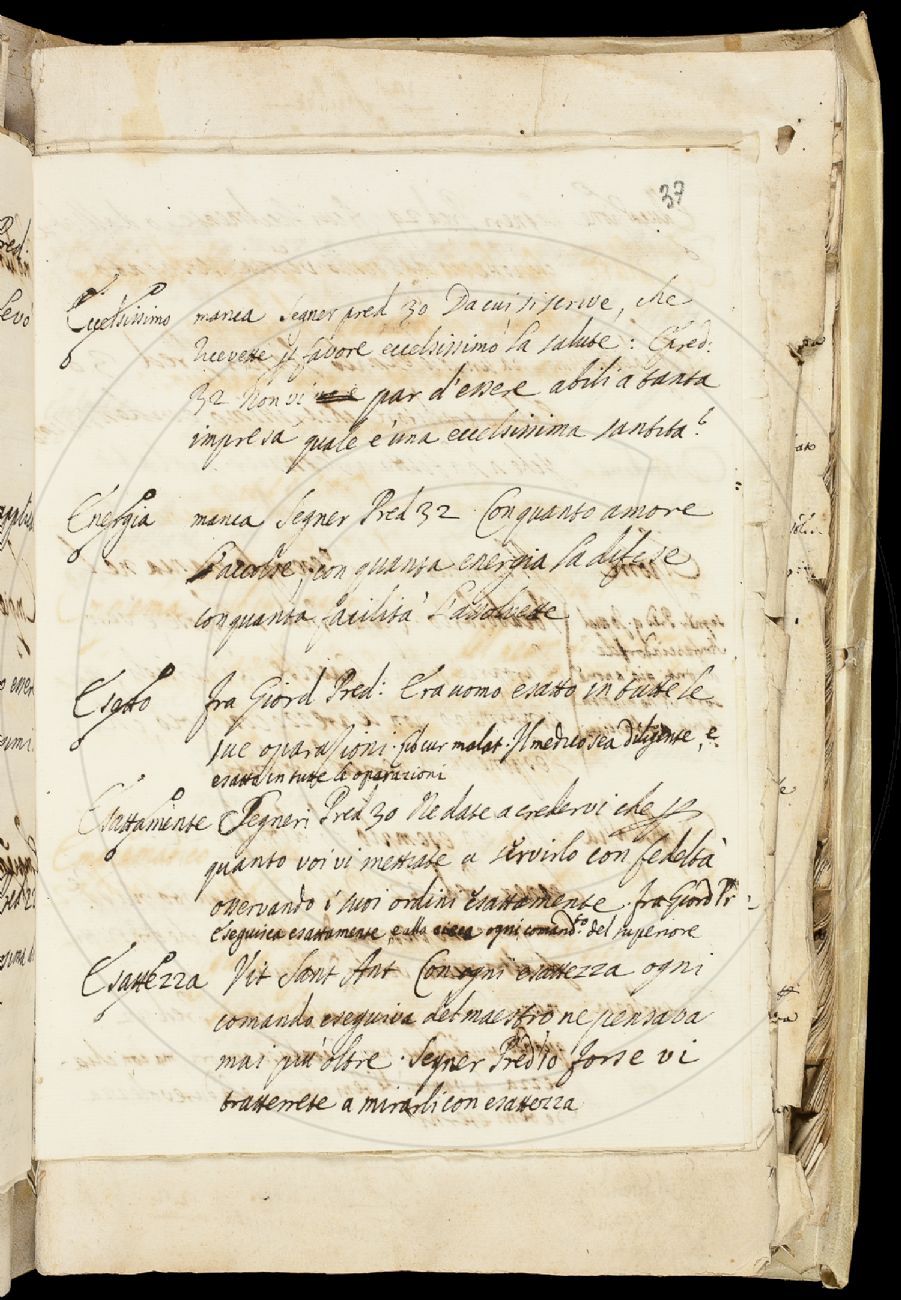 37
Eccelsissimo manca Segner pred 30 Da cui si scrive, che
ricevette p favore eccelsissimo la salute: Pred:
32 Non vi par d'essere abili a tanta
impresa quale è una eccelsissima santità?
Energia manca Segner Pred 32 Con quanto amore
l'accolse, con quanta energia la difese
con quanta facilità l'assolvette
Esatto fra Giord Pred: Era uomo esatto in tutte le
sue operazioni. lib cur malat. Il medico sea diligente, e
esatto in tutte le oparazioni
Esattamente Segneri Pred 30 Ne date a credervi che p
quanto voi vi mettiate a servirlo con fedeltà
osservando i suoi ordini esattamente fra Giord Pr
eseguisca esattamente, e alla cieca ogni comandto del superiore
Esattezza Vit Sant Ant Con ogni esattezza ogni
comando eseguiva del maestro ne pensava
mai più oltre. Segner Pred 10 forse vi
tratterrete a mirarli con esattezza